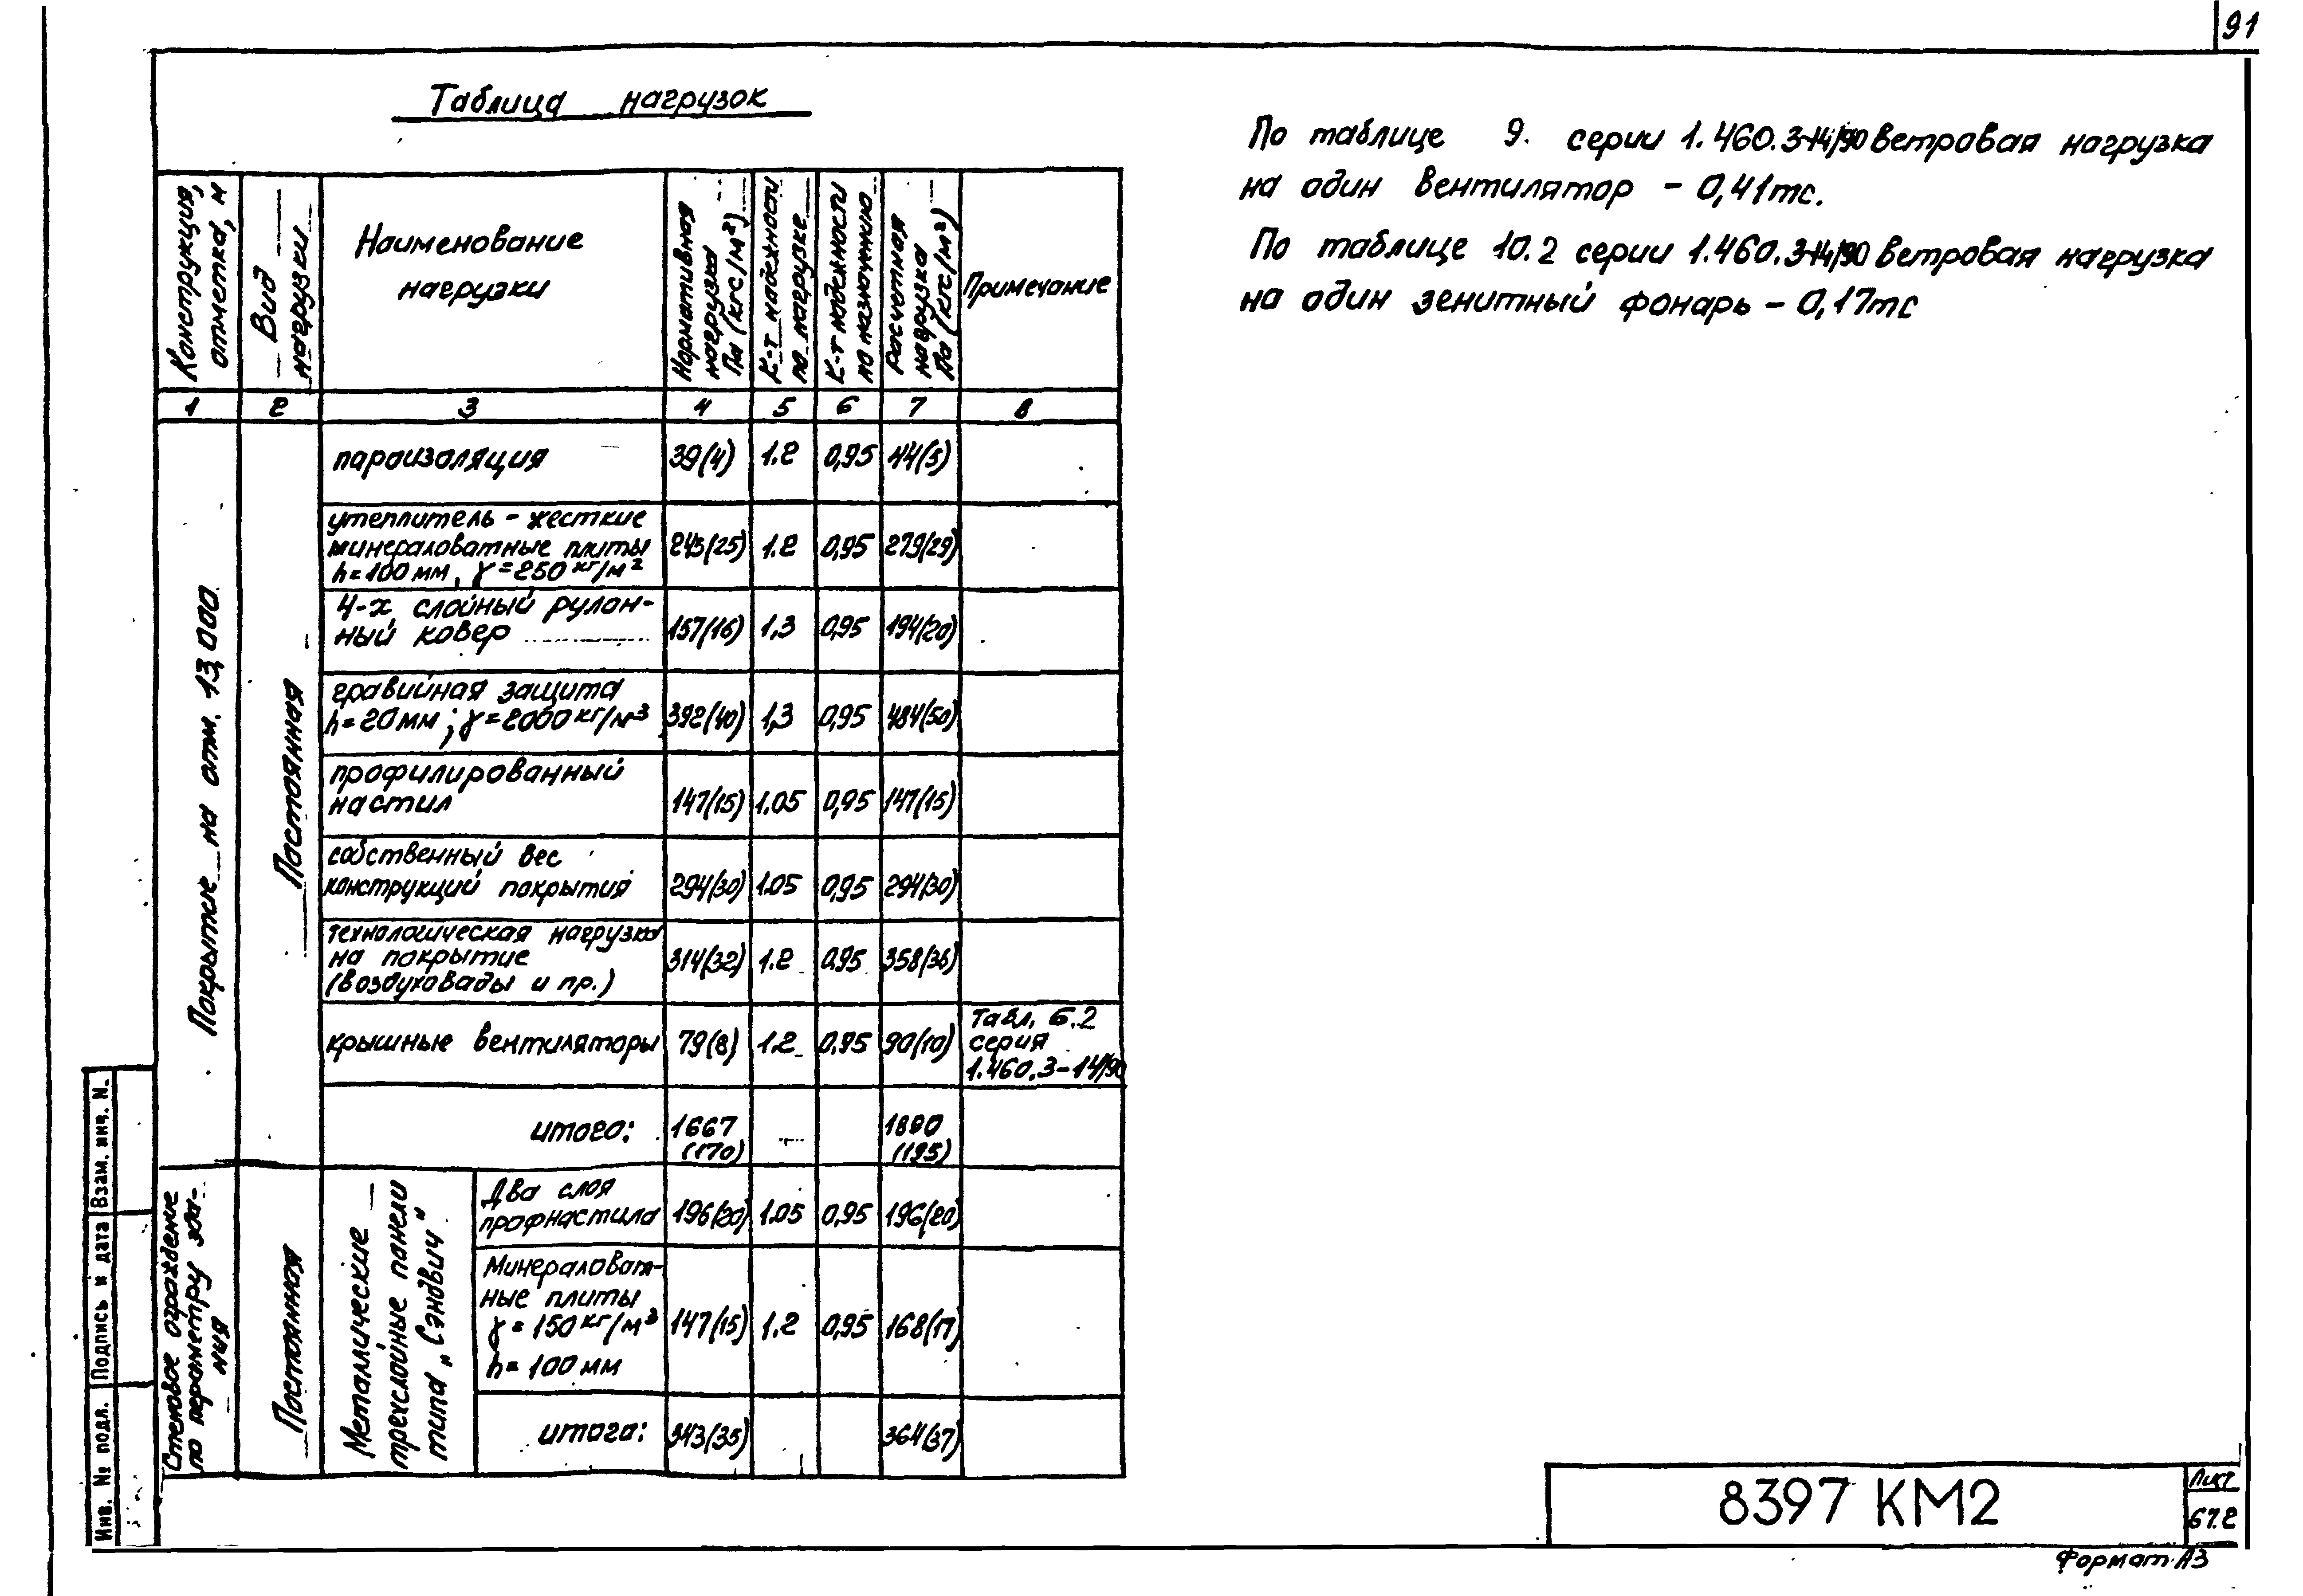 91
Таблица нагрузок
Конструкция, отметка, м
Вид нагрузки
Наименование нагрузки
Нормативная нагрузка Па (кгс/м²)
К-т надежности по нагрузке
К-т надежности по назначению
Расчетная нагрузка Па (кгс/м²)
Примечание
1 2 3 4 5 6 7 8
Покрытие на отм. 13,000
Постоянная
пароизоляция 39(4) 1.2 0,95 44(5)
утеплитель - жесткие
минераловатные плиты 245(25) 1.2 0,95 279(29)
h=100 мм, γ=250 кг/м²
4-х слойный рулон-
ный ковер 157(16) 1,3 0,95 194(20)
гравийная защита
h=20мм; γ=2000 кг/м³ 392(40) 1,3 0,95 484(50)
профилированный
настил 147(15) 1.05 0,95 147(15)
собственный вес
конструкций покрытия 294(30) 1.05 0,95 294(30)
технологическая нагрузка
на покрытие 314(32) 1.2 0,95 358(36)
(воздуховады и пр.)
крышные вентиляторы 79(8) 1.2 0,95 90(10)
Табл. 6.2
серия
1.460.3-14/90
итого: 1667 1890
(170) (195)
Стеновое ограждение
по периметру зда-
ния
Постоянная
Металлические
трехслойные панели
типа „Сэндвич"
Два слоя
профнастила 196(20) 1.05 0,95 196(20)
Минераловат-
ные плиты
γ=150 кг/м³ 147(15) 1.2 0,95 168(17)
h=100 мм
итога: 343(35) 364(37)
По таблице 9. серии 1.460.3-14/90 ветровая нагрузка
на один вентилятор - 0,41тс.
По таблице 10.2 серии 1.460.3-14/90 ветровая нагрузка
на один зенитный фонарь - 0,17тс
Инв. № подл. Подпись и дата Взам. инв. N.
8397 КМ2
Лист
67.2
Формат А3